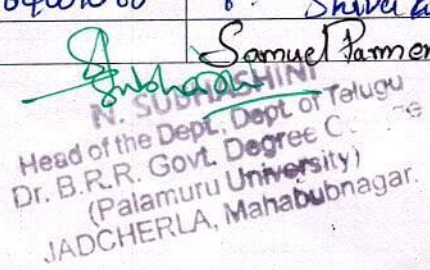 Samuel Parmer
Subhashini
N. SUBHASHINI
Head of the Dept, Dept of Telugu
Dr. B.R.R. Govt. Degree C
(Palamuru University)
JADCHERLA, Mahabubnagar.